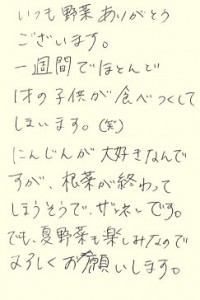 いつも野菜ありがとう
ございます。
一週間でほとんど
1才の子供が食べつくして
しまいます。(笑)
にんじんが大好きなんで
すが、根菜が終わって
しまうそうで、ザンネンです。
でも、夏野菜も楽しみなので
よろしくお願いします。